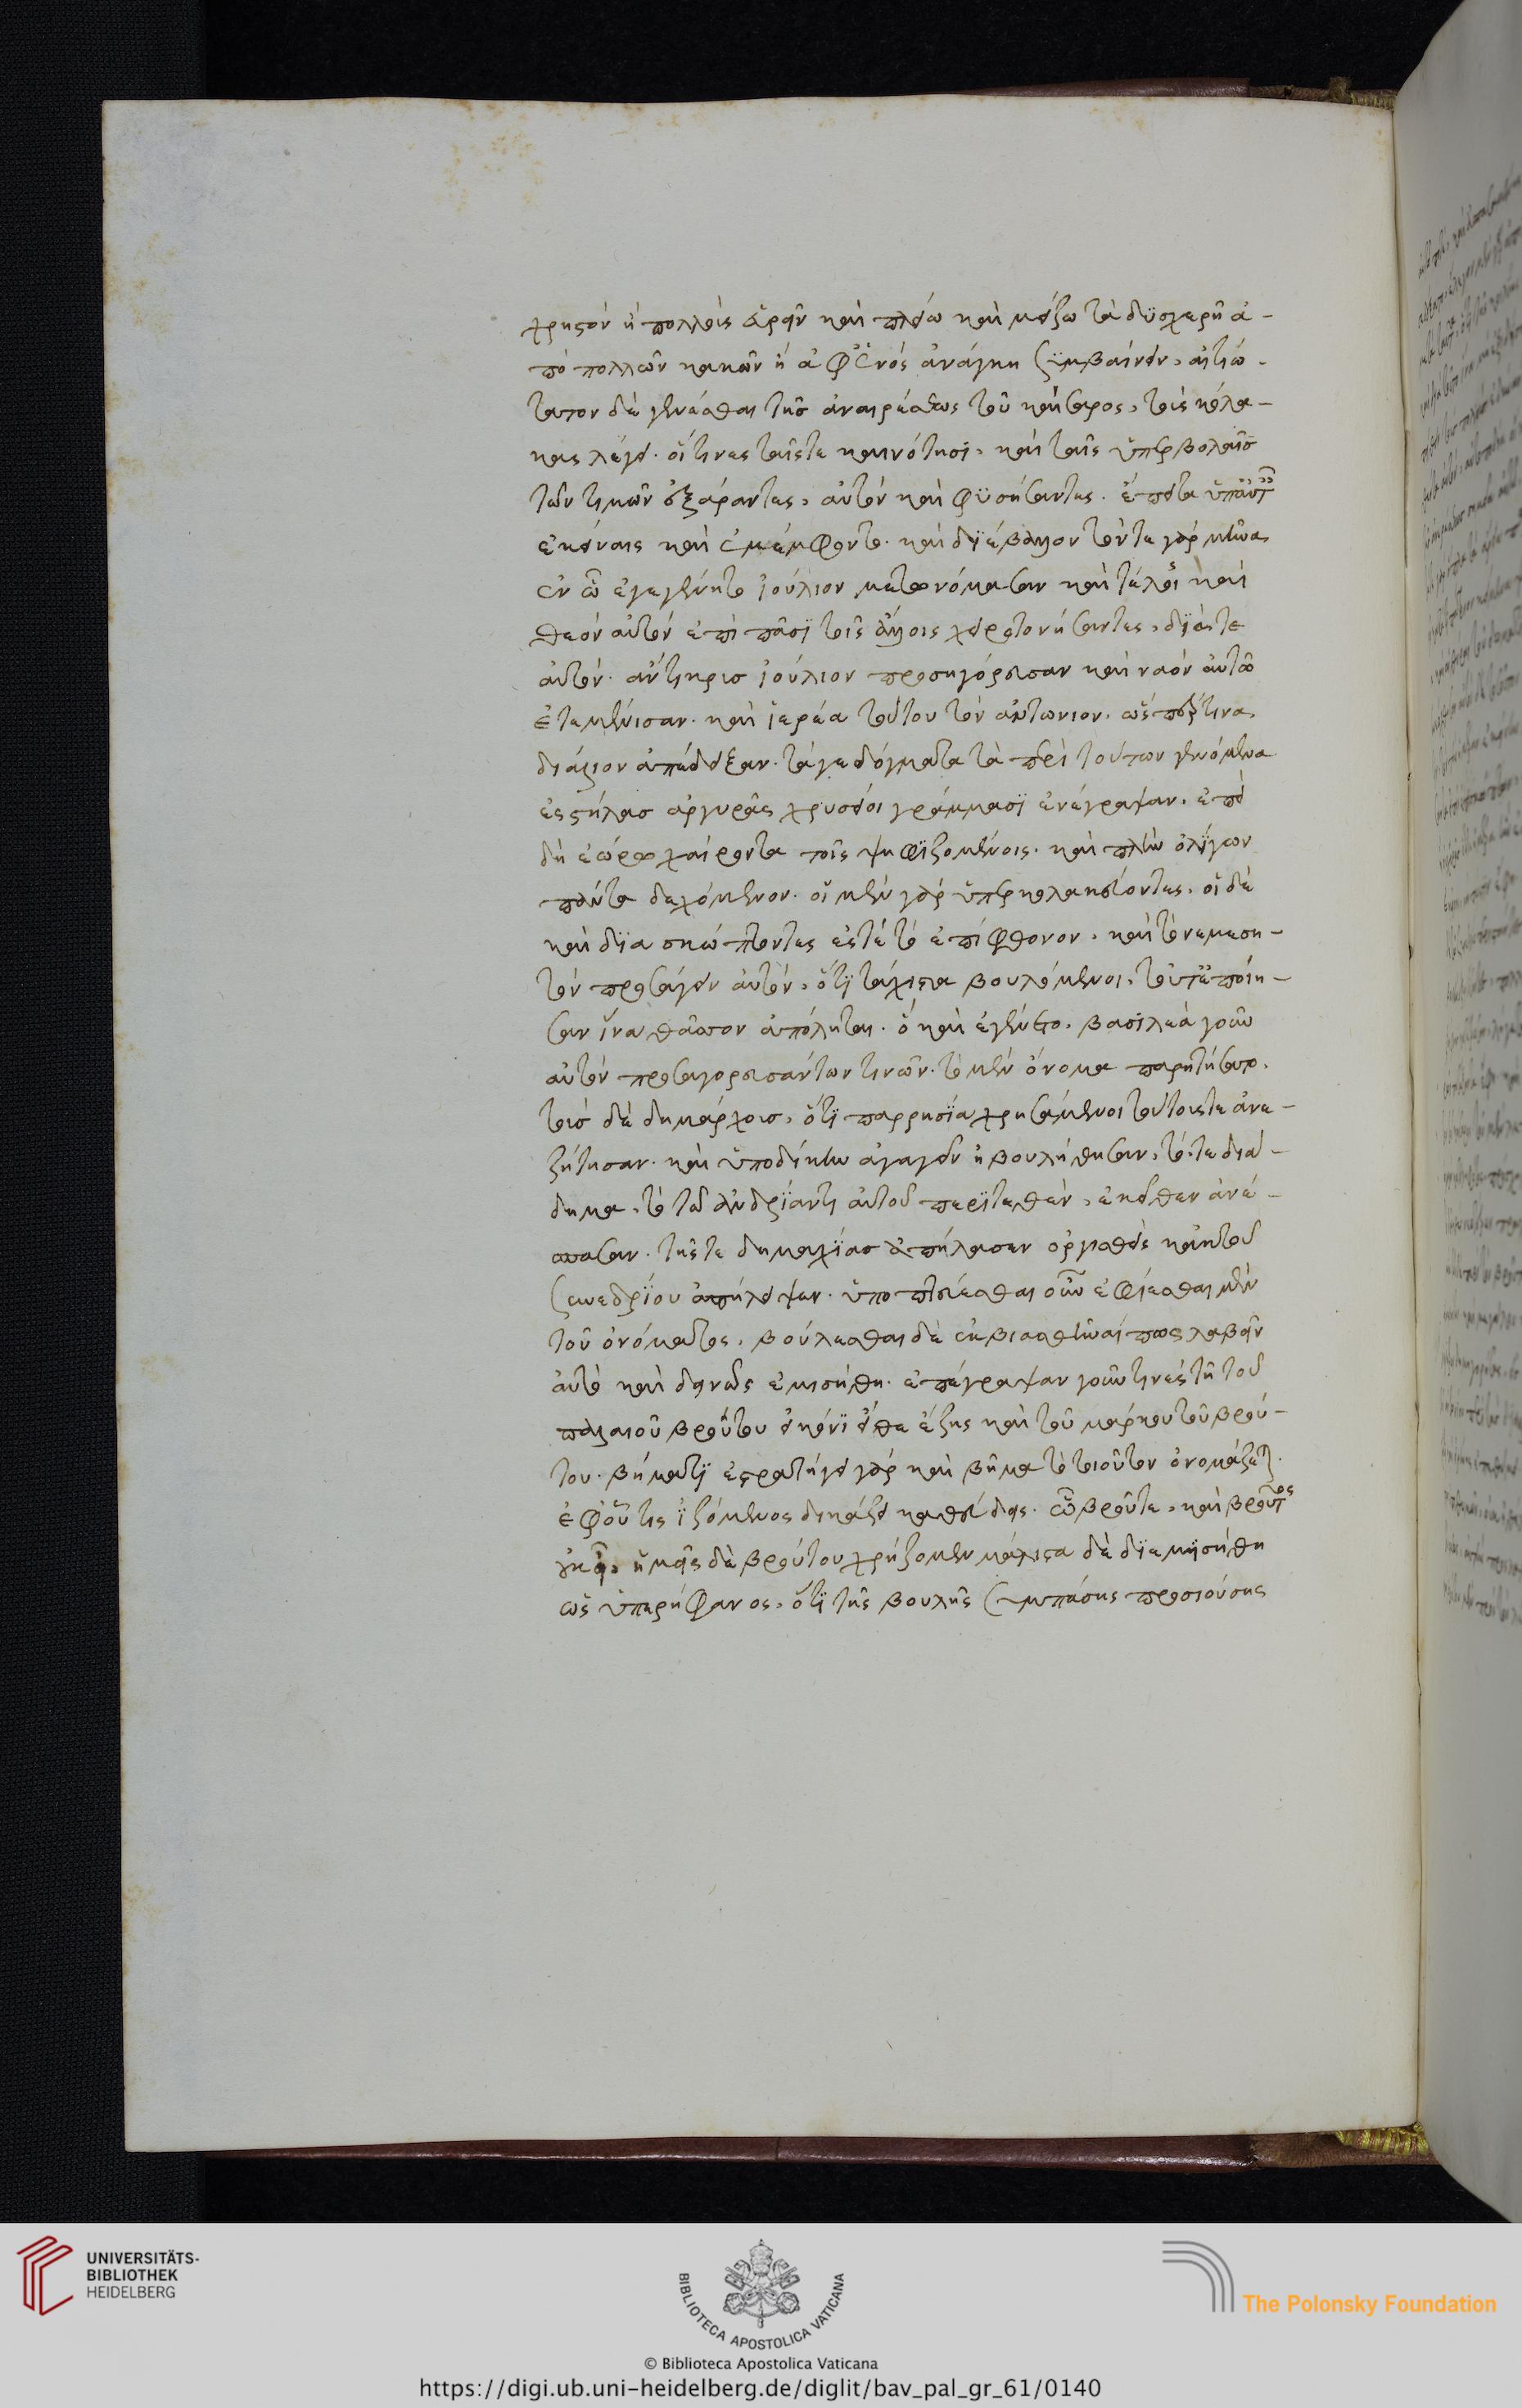 χρηστὸν ἢ πολλοῖς εὑρεῖν καὶ πλείω καὶ μείζω τὰ δυσχερῆ ἀ-
πὸ πολλῶν κακῶν ἢ ἀφ' ἑνός ἀνάγκη ξυμβαίνειν, αἰτιώ-
τατον δὲ γενέσθαι τῆς ἀναιρέσεως τοῦ καίσαρος, τοὺς κόλα-
κας λέγει. οἵτινες ταῖς τε καινότησι, καὶ ταῖς ὑπερβολαῖς
τῶν τιμῶν ἐξάραντες, αὐτὸν καὶ φυσήσαντες. ἔπειτα ὑπ' αὐτ
ἐκείναις καὶ ἐμέμφοντο. καὶ διέβαλλον τόν τε γὰρ μῆνα
ἐν ᾧ ἐγεγέννητο ἰούλιον μετονόμασαν καὶ τέλος καὶ
θεὸν αὐτὸν ἐπὶ πᾶσι τοῖς ἄλλοις χειροτονήσαντες, δία τε
αὐτὸν ἄντικρις ἰούλιον προσηγόρευσαν καὶ ναὸν αὐτῷ
ἐτεμένισαν. καὶ ἱερέα τούτου τὸν ἀντώνιον, ὥσπέρ τινα
διάλιον ἀπέδειξαν. τά γε δόγματα τὰ περὶ τούτων γενόμενα
ἐς στήλας ἀργυρᾶς χρυσέοι γράμμασι ἐνέγραψαν. ἐπεὶ
δὴ ἑώρων χαίροντα τοῖς ψηφιζομένοις. καὶ πλὴν ὀλίγων
πάντα δεχόμενον. οἱ μὲν γὰρ ὑπερκολακεύοντες, οἱ δὲ
καὶ διασκώπτοντες ἔς τε τὸ ἐπίφθονον, καὶ τὸ νεμεση-
τὸν προσάγειν αὐτόν, ὅτι τάχιστα βουλόμενοι, τοῦτ' ἐποίη-
σαν ἵνα θᾶττον ἀπόληται. ὃ καὶ ἐγένετο. βασιλέα γοῦν
αὐτὸν προσαγορευσάντων τινῶν. τὸ μὲν ὄνομα παρῃτήσατο.
τοῖς δὲ δημάρχοις, ὅτι παρρησίᾳ χρησάμενοι τούτους τε ἀνε-
ζήτησαν. καὶ ὑπὸ δίκην ἀγαγεῖν ἠβουλήθησαν, τό τε διά-
δημα, τὸ τῷ ἀνδριάντι αὐτοῦ περιτεθὲν, ἐκεῖθεν ἀνέ-
σπασαν. τῆς τε δημαρχίας ἀπήλασεν ὀργισθεὶς κἀκ τοῦ
ξυνεδρίου ἀπήλειψεν. ὑποπτεύεσθαι οὖν ἐφίεσθαι μὲν
τοῦ ὀνόματος, βούλεσθαι δὲ ἐκβιασθῆναί πως λαβεῖν
αὐτὸ καὶ δεινῶς ἐμισήθη. ἐπέγραψαν γοῦν τινές τῇ τοῦ
παλαιοῦ βρούτου εἰκόνι εἴθε ἔζης καὶ τοῦ μάρκου τοῦ βρού-
του. βήματι ἐστρατήγει γὰρ καὶ βῆμα τὸ τοιοῦτον ὀνομάζετ.
ἐφ' οὗ τις ἱζόμενος δικάζει καθεύδεις. ὦ βροῦτε, καὶ βροῦτος
οὐκ εἶ, ἡμεῖς δὲ βρούτου χρῄζομεν μάλιστα δὲ διεμισήθη
ὡς ὑπερήφανος, ὅτι τῆς βουλῆς ξυμπάσης προσιούσης
UNIVERSITÄTS-
BIBLIOTHEK
HEIDELBERG
BIBLIOTECA APOSTOLICA VATICANA
The Polonsky Foundation
© Biblioteca Apostolica Vaticana
https://digi.ub.uni-heidelberg.de/diglit/bav_pal_gr_61/0140